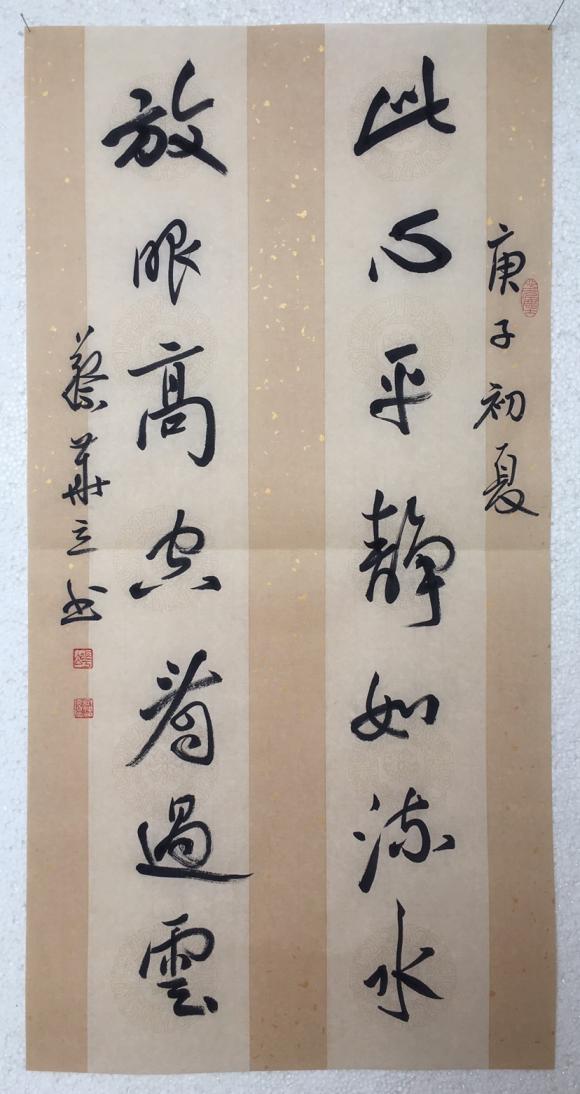 庚子初夏
此心平静如流水
放眼高空看過雲
蔡華立书